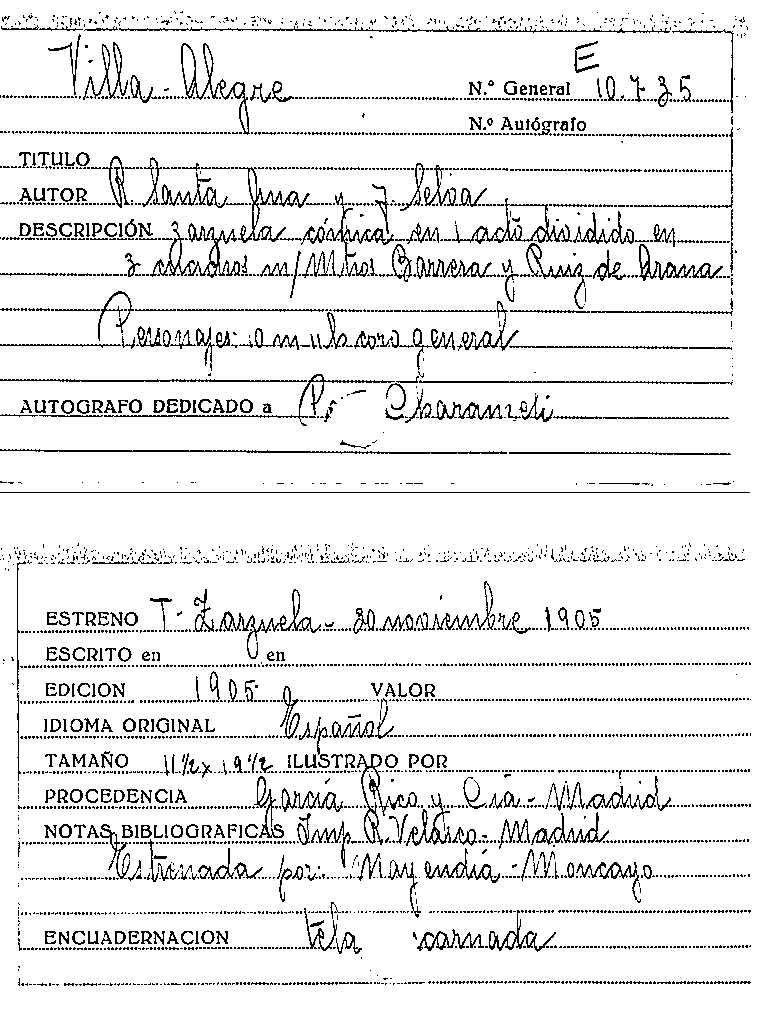 E
Villa-Alegre
N.º General 10.735
N.º Autógrafo
TITULO
AUTOR R. Santa Ana y J. Selva
DESCRIPCIÓN zarzuela cómica en 1 acto dividido en
3 cuadros m/ Mtros Barrera y Ruiz de Arana
Personajes: 10 m 11 h coro general
AUTOGRAFO DEDICADO a P.
ESTRENO T- Zarzuela - 20 noviembre 1905
ESCRITO en en
EDICION 1905 VALOR
IDIOMA ORIGINAL Español
TAMAÑO 11½ x 19½ ILUSTRADO POR
PROCEDENCIA García Rico y Cia - Madrid
NOTAS BIBLIOGRAFICAS Imp R. Velasco - Madrid
Estrenada por: Mayendia - Moncayo
ENCUADERNACION tela